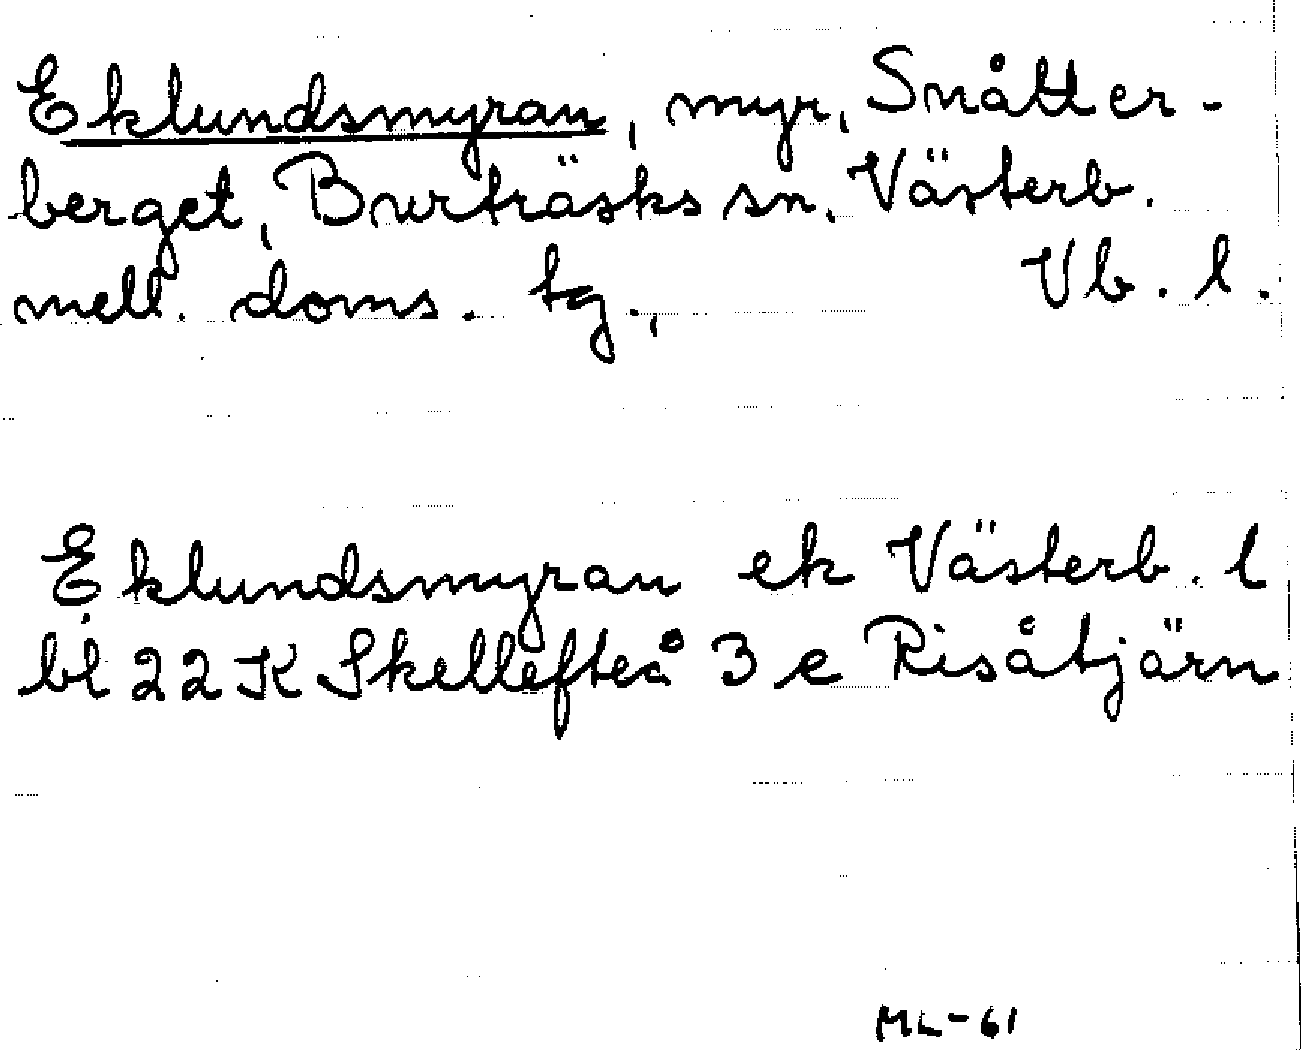 Eklundsmyran, myr, Snåtter-
berget, Burträsks sn, Västerb.
mell. doms. tg., Vb. l.
Eklundsmyran ek Västerb. l
bl 22 K Skellefteå 3 e Risåtjärn
ML-61